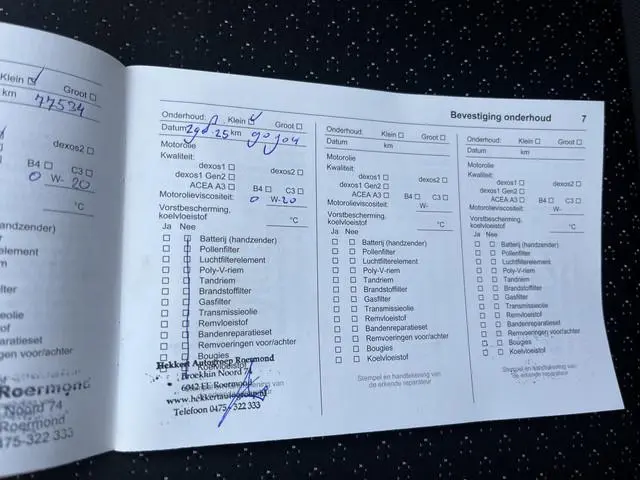 Klein ☑ Groot ☐
km 77534
dexos2 ☐
B4 ☐ C3 ☐
0 W- 20
°C
(handzender)
element
ffilter
issieolie
loeistof
paratieset
ngen voor/achter
Roermond
Noord 74
Roermond
475-322 333
Bevestiging onderhoud 7
Onderhoud: Klein ☑ Groot ☐
Datum km
Motorolie
Kwaliteit:
dexos1 ☐ dexos2 ☐
dexos1 Gen2 ☐
ACEA A3 ☐ B4 ☐ C3 ☐
Motorolieviscositeit: 0 W- 20
Vorstbescherming, koelvloeistof °C
Ja Nee
☐ ☐ Batterij (handzender)
☐ ☐ Pollenfilter
☐ ☐ Luchtfilterelement
☐ ☐ Poly-V-riem
☐ ☐ Tandriem
☐ ☐ Brandstoffilter
☐ ☐ Gasfilter
☐ ☐ Transmissieolie
☐ ☐ Remvloeistof
☐ ☐ Bandenreparatieset
☐ ☐ Remvoeringen voor/achter
☐ ☐ Bougies
☐ ☐ Koelvloeistof
Hekkert Autogroep Roermond
Broekhin Noord 7
6042 EL Roermond
www.hekkertautogroep.nl
Telefoon 0475 - 322 333
Onderhoud: Klein ☐ Groot ☐
Datum km
Motorolie
Kwaliteit:
dexos1 ☐ dexos2 ☐
dexos1 Gen2 ☐
ACEA A3 ☐ B4 ☐ C3 ☐
Motorolieviscositeit: W-
Vorstbescherming, koelvloeistof °C
Ja Nee
☐ ☐ Batterij (handzender)
☐ ☐ Pollenfilter
☐ ☐ Luchtfilterelement
☐ ☐ Poly-V-riem
☐ ☐ Tandriem
☐ ☐ Brandstoffilter
☐ ☐ Gasfilter
☐ ☐ Transmissieolie
☐ ☐ Remvloeistof
☐ ☐ Bandenreparatieset
☐ ☐ Remvoeringen voor/achter
☐ ☐ Bougies
☐ ☐ Koelvloeistof
Stempel en handtekening van
de erkende reparateur
Onderhoud: Klein ☐ Groot ☐
Datum km
Motorolie
Kwaliteit:
dexos1 ☐ dexos2 ☐
dexos1 Gen2 ☐
ACEA A3 ☐ B4 ☐ C3 ☐
Motorolieviscositeit: W-
Vorstbescherming, koelvloeistof °C
Ja Nee
☐ ☐ Batterij (handzender)
☐ ☐ Pollenfilter
☐ ☐ Luchtfilterelement
☐ ☐ Poly-V-riem
☐ ☐ Tandriem
☐ ☐ Brandstoffilter
☐ ☐ Gasfilter
☐ ☐ Transmissieolie
☐ ☐ Remvloeistof
☐ ☐ Bandenreparatieset
☐ ☐ Remvoeringen voor/achter
☐ ☐ Bougies
☐ ☐ Koelvloeistof
Stempel en handtekening van
de erkende reparateur